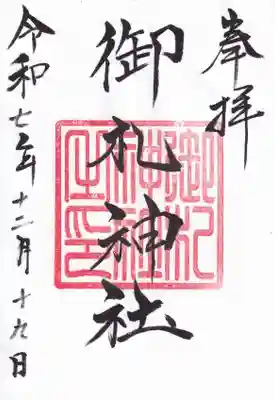 奉拝
御札神社
御札神社之印
令和七年十二月十九日